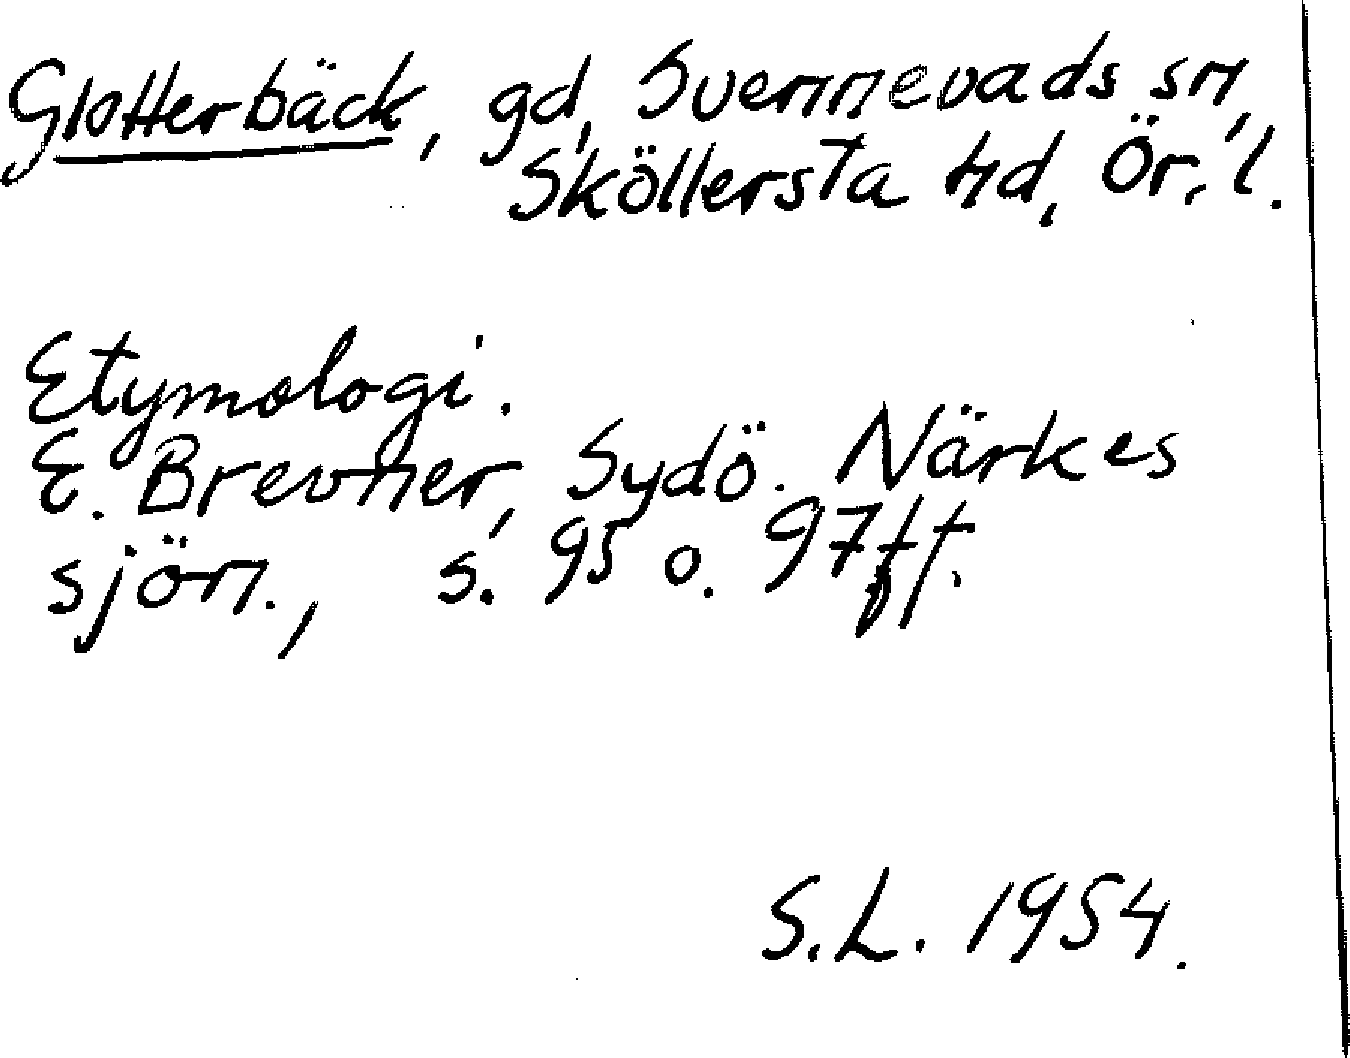 Glotterbäck, gd, Svennevads sn,
Sköllersta hd, Ör. l.
Etymologi.
E. Brevner, Sydö. Närkes
sjön., s. 95 o. 97 ff.
S.L. 1954.